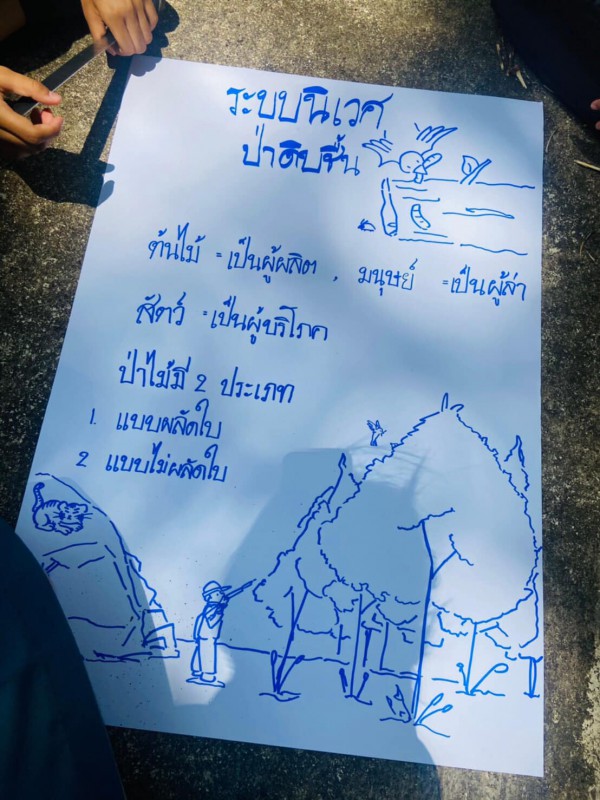 ระบบนิเวศ
ป่าดิบชื้น
ต้นไม้ = เป็นผู้ผลิต , มนุษย์ = เป็นผู้ล่า
สัตว์ = เป็นผู้บริโภค
ป่าไม้มี 2 ประเภท
1. แบบผลัดใบ
2 แบบไม่ผลัดใบ